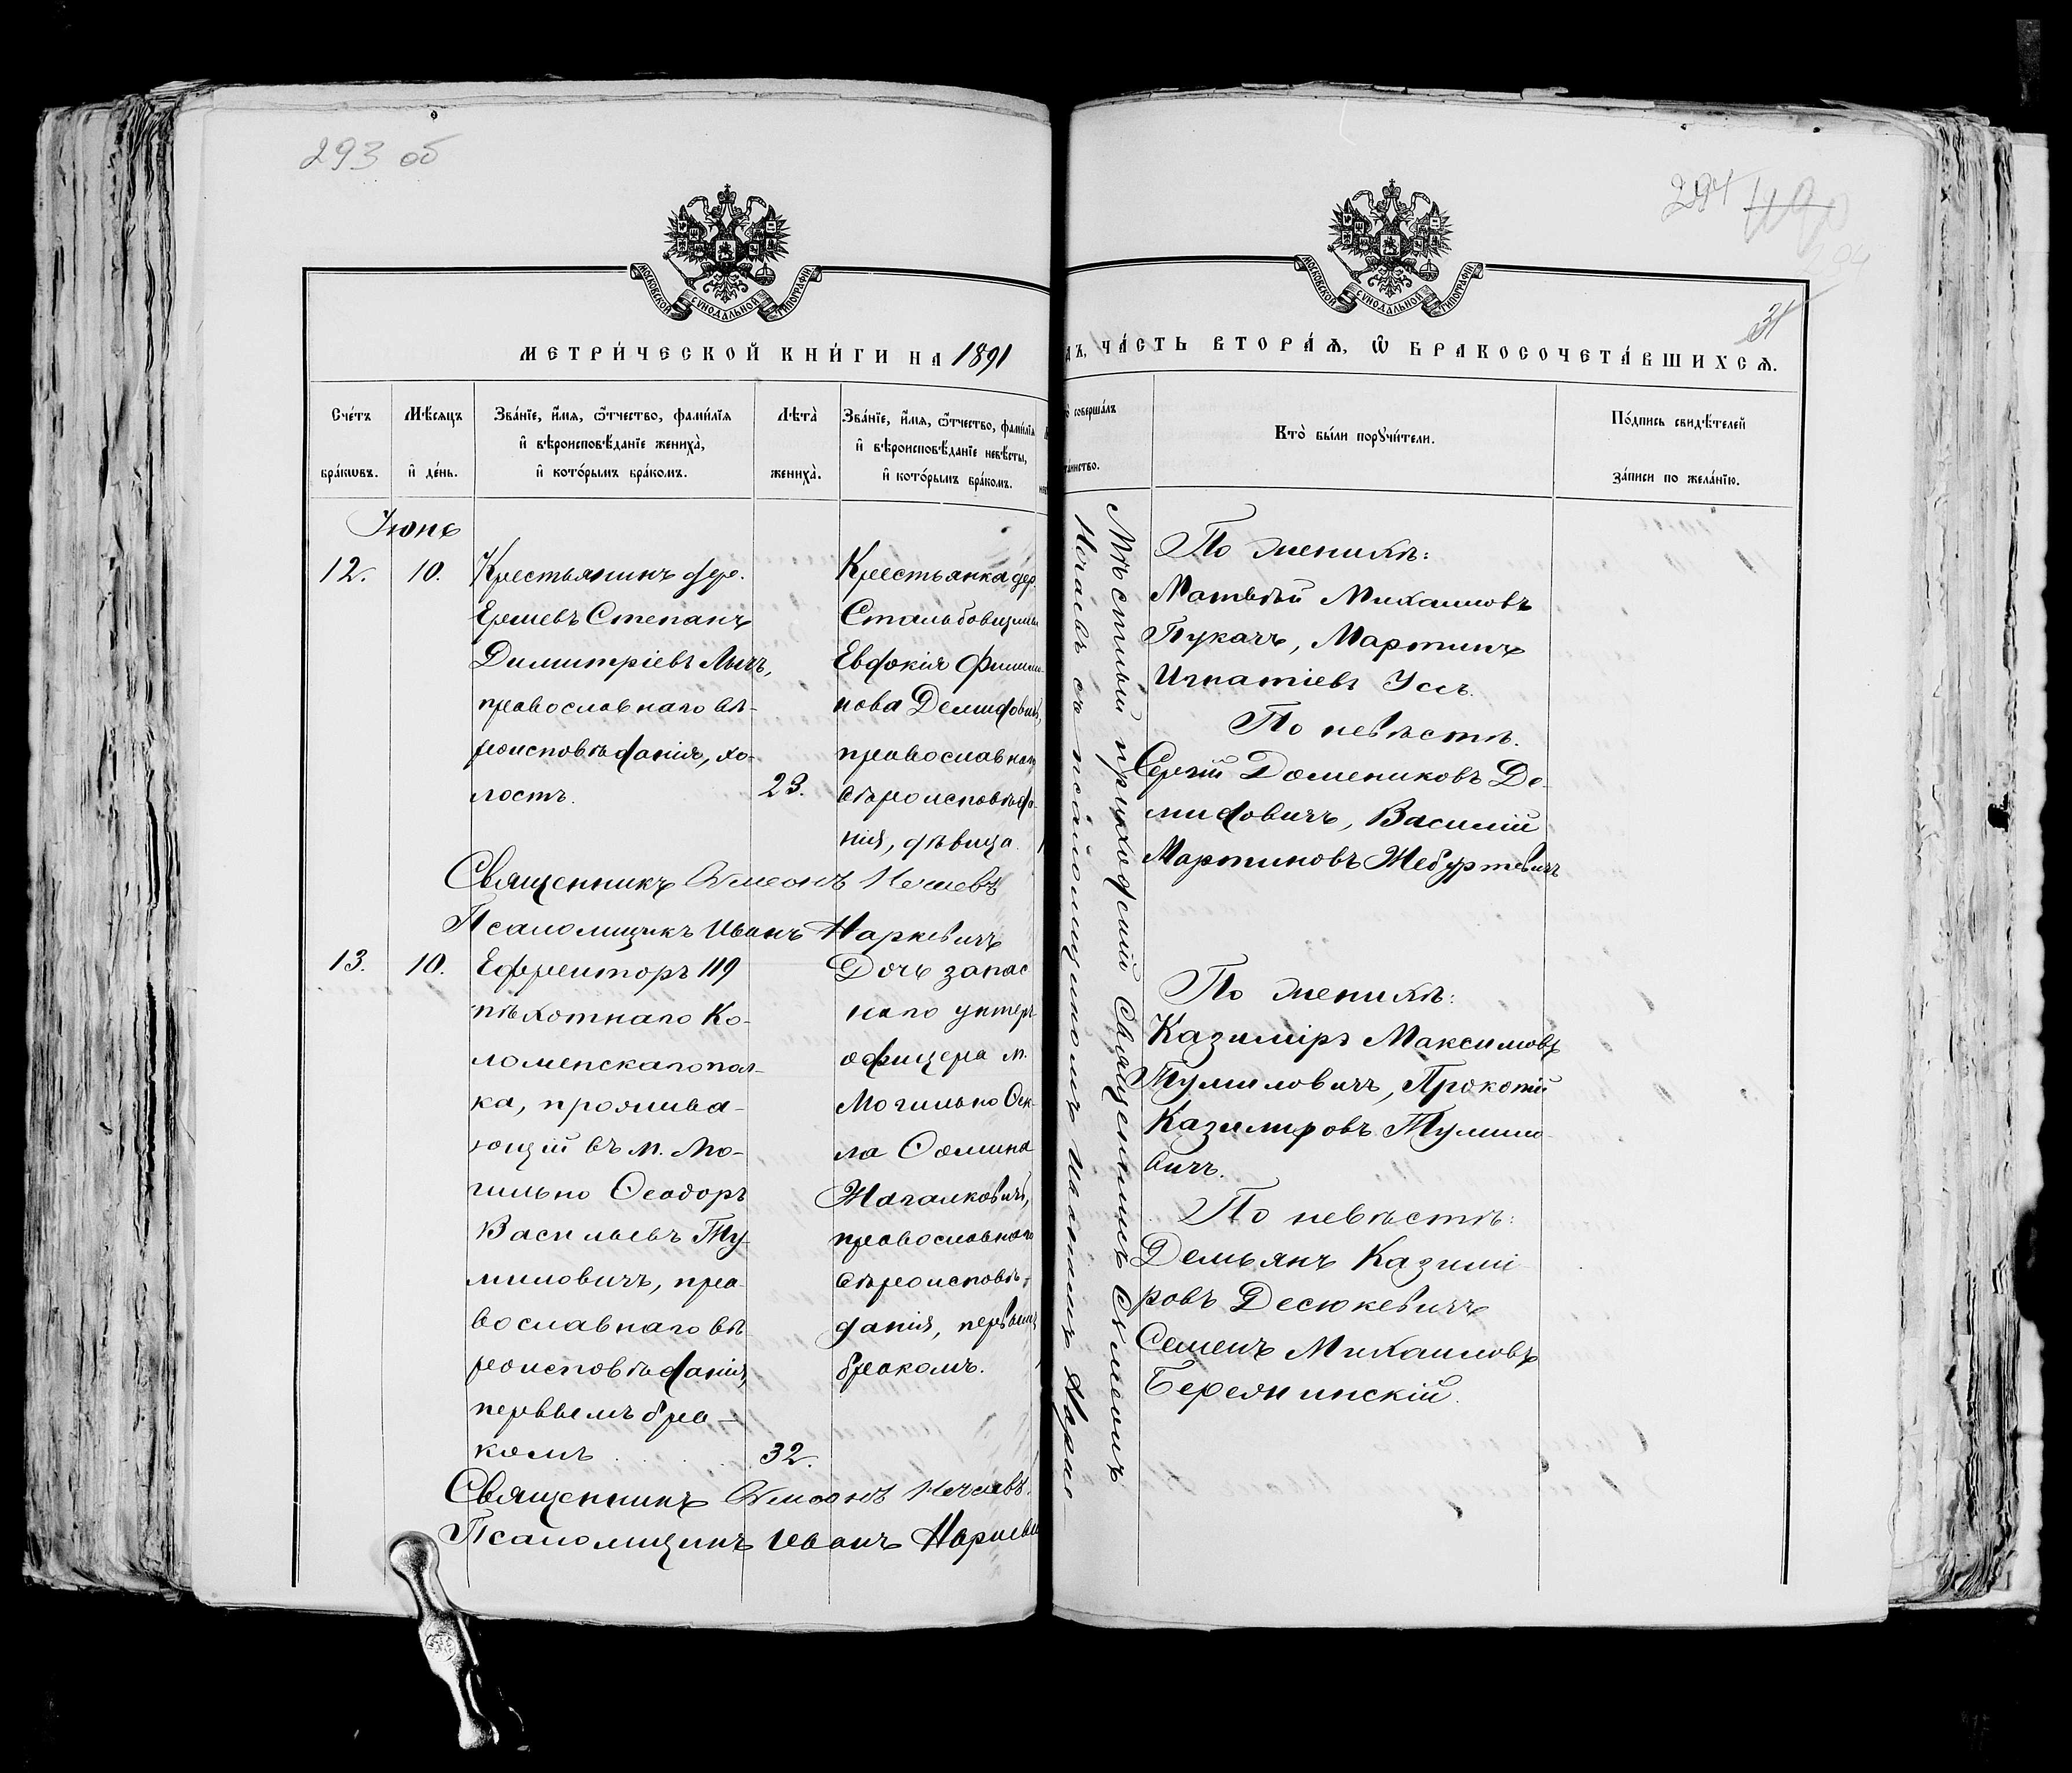 293 об
МОСКОВСКОЙ СѴНОДАЛЬНОЙ ТИПОГРАФІИ
МЕТРИ́ЧЕСКОЙ КНИ́ГИ НА 1891
Сче́тъ бра́кѡвъ.
Мѣ́сяцъ и҆ де́нь.
Зва́ніе, и҆́мя, ѻ҆́тчество, фами́лія
и҆ вѣроисповѣ́даніе жениха̀,
и҆ кото́рымъ бра́комъ.
Лѣта̀ жениха̀.
Зва́ніе, и҆́мя, ѻ҆́тчество, фами́лія
и҆ вѣроисповѣ́даніе невѣ́сты,
и҆ кото́рымъ бра́комъ.
Іюнь
12.
10.
Крестьянинъ дер.
Ершевъ Степанъ
Димитріевъ Лычъ,
православнаго вѣ-
роисповѣданія, хо-
лостъ.
23.
Крестьянка дер.
Евдокія
нова Демидовичъ,
православнаго
вѣроисповѣда-
нія, дѣвица.
Священникъ Симеонъ Нечаевъ
Псаломщикъ Иванъ Наркевичъ
13.
10.
Ефрейторъ 119
пѣхотнаго Ко-
ломенскаго пол-
ка, прожива-
ющій въ м. Мо-
гильно Ѳеодоръ
Васильевъ Ту-
миловичъ, пра-
вославнаго вѣ
роисповѣданія,
первымъ бра-
комъ
32.
Дочь запас
наго унтеръ
офицера м.
Могильно Ѳек-
ла Ѳомина
Жагалковичъ,
православнаго
вѣроисповѣ-
данія, первымъ
бракомъ.
Священникъ Симеонъ Нечаевъ.
Псаломщикъ Иванъ Наркеви
294
31
МОСКОВСКОЙ СѴНОДАЛЬНОЙ ТИПОГРАФІИ
дъ, ЧА́СТЬ ВТОРА́Ѧ, Ѽ БРАКОСОЧЕТА́ВШИХСѦ.
соверша́лъ
та́инство.
Кто̀ бы́ли порꙋчи́тели.
По́дпись свидѣ́телей
за́писи по жела́нію.
Мѣстный приходскій Священникъ Симеонъ
Нечаевъ съ псаломщикомъ Иваномъ Нарке
По женихѣ:
Матвѣй Михаиловъ
Пукачъ, Мартинъ
Игнатіевъ Усъ.
По невѣстѣ.
Сергій Домениковъ Де-
мидовичъ, Василій
Мартиновъ Жебуртовичъ
По женихѣ:
Казиміръ Максимовъ
Тумиловичъ, Прокопій
Казиміровъ Тумило-
вичъ.
По невѣстѣ:
Демьянъ Казимі-
ровъ Десюкевичъ
Семенъ Михаиловъ